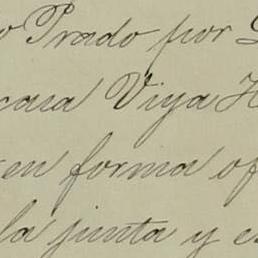 o Prado por L
cara Viya H
en forma of
la junta y es